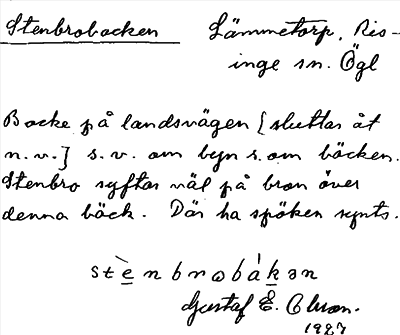 Stenbrobacken Lämmetorp, Ris-
inge sn. Ögl
Backe på landsvägen [sluttar åt
n.v.] s.v. om byn s. om bäcken.
Stenbro syftar väl på bron över
denna bäck. Där ha spöken synts.
Gustaf E. Olsson.
1927